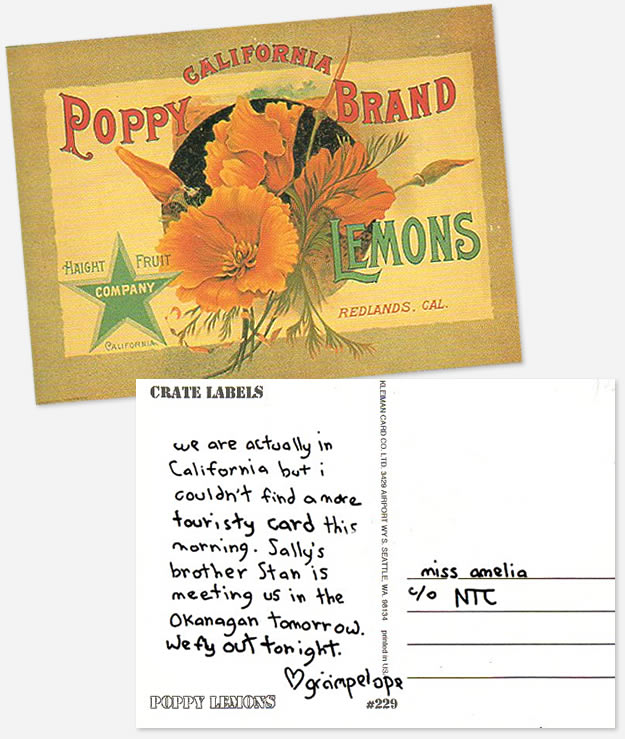 CALIFORNIA
POPPY BRAND
LEMONS
HAIGHT FRUIT
COMPANY
CALIFORNIA
REDLANDS, CAL.
CRATE LABELS
we are actually in
California but i
couldn't find a more
touristy card this
morning. Sally's
brother Stan is
meeting us in the
Okanagan tomorrow.
We fly out tonight.
♡ grampelope
POPPY LEMONS
#229
KLEIMAN CARD CO. LTD. 3429 AIRPORT WY S. SEATTLE, WA. 98134 printed in US
miss amelia
c/o NTC